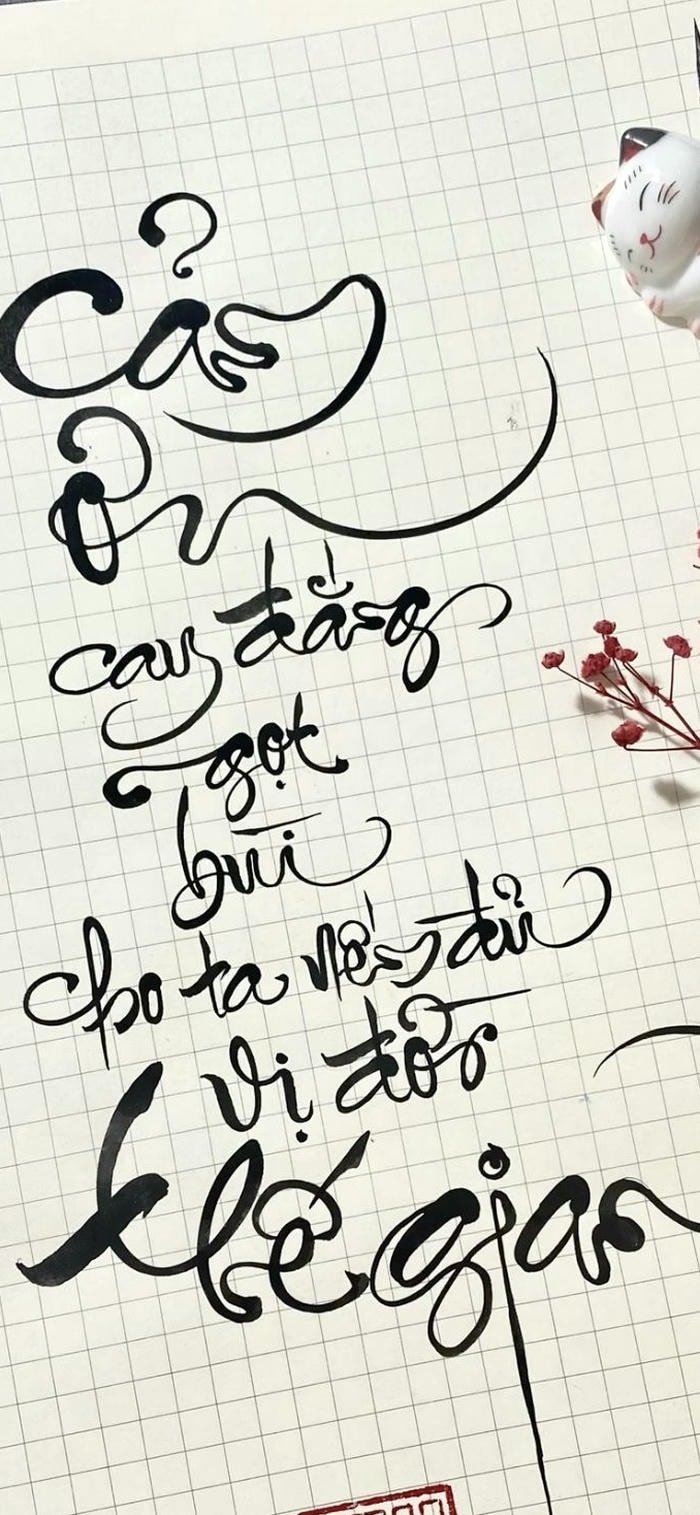 Cảm
ơn
cay đắng
ngọt
bùi
cho ta nếm đủ
vị đời
thế gian